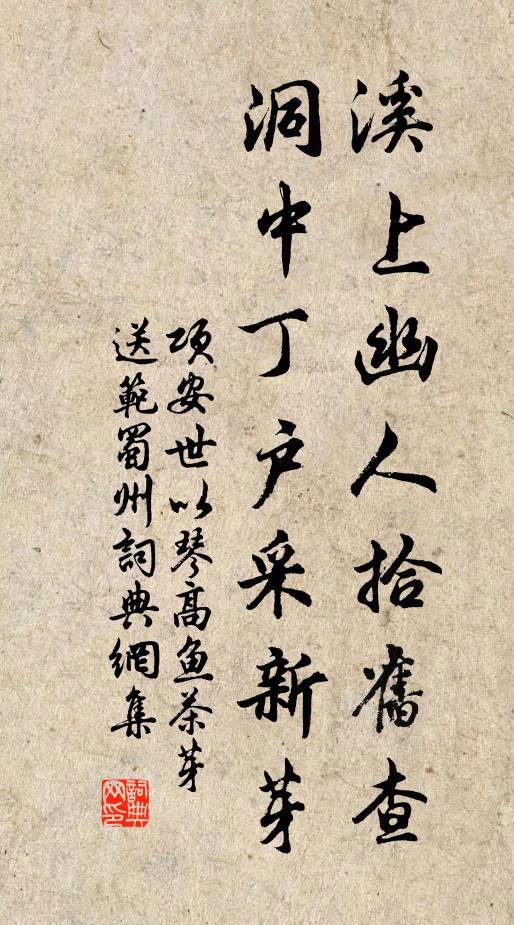 溪上幽人拾舊查
洞中丁户采新芽
项安世以琴高鱼茶芽
送範蜀州詞典網集
詞典网印